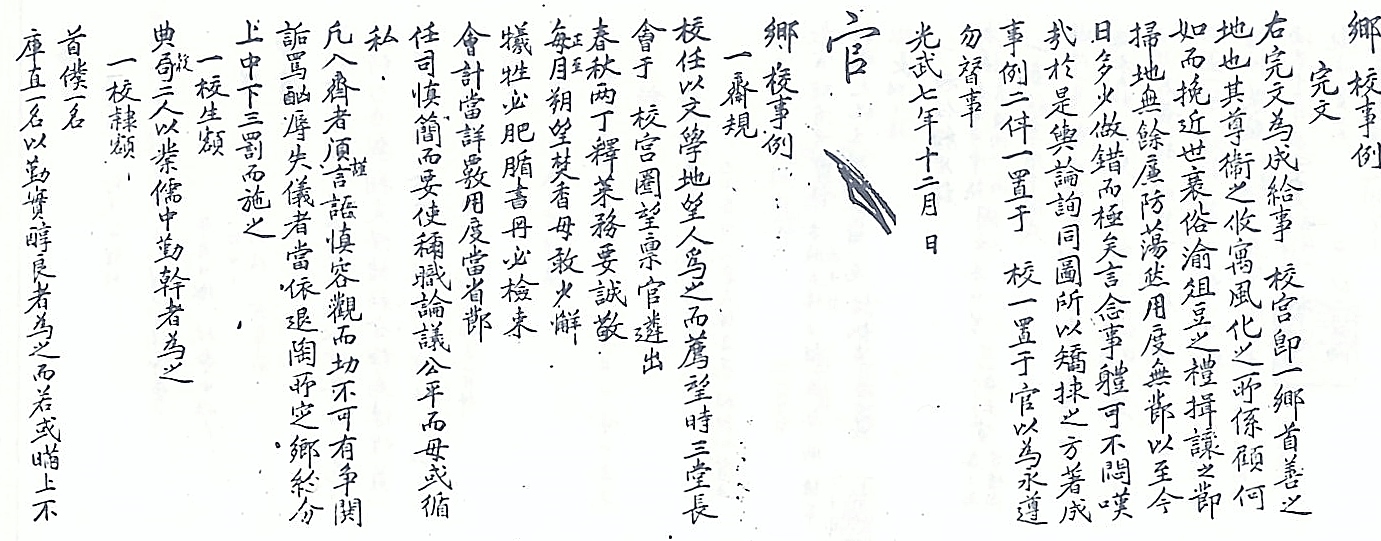 鄉 校事例
完文
右完文為成給事 校宮卽一鄉首善之
地也其尊衛之攸寓風化之所係顧何
如而挽近世衰俗渝俎豆之禮揖讓之節
掃地無餘廉防蕩然用度無節以至今
日多少做錯而極矣言念事軆可不悶嘆
玆於是輿論詢同圖所以矯捄之方著成
事例二件一置于 校一置于官以為永遵
勿替事
光武七年十二月 日
官
鄉 校事例
一齋規
校任以文學地望人爲之而薦望時三堂長
會于 校宮圈望稟官遴出
春秋两丁釋菜務要誠敬
每月朔望焚香毋敢少懈
正至
犧牲必肥腯書冊必檢束
會計當詳覈用度當省節
任司愼簡而要使稱職論議公平而毋或循
私
凡入齋者須言語愼容觀而切不可有爭鬨
謹
詬罵酗辱失儀者當依退陶所定鄉約分
上中下三罰而施之
一校生額
典局二人以業儒中勤幹者為之
設
一校隸額
首僕一名
庫直一名以勤實醇良者為之而若或瞞上不